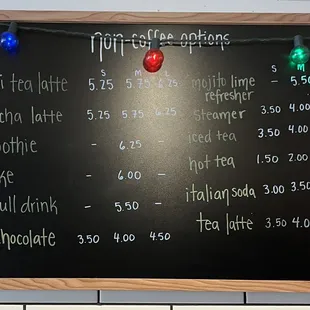 non-coffee options
S M L
i tea latte 5.25 5.75 6.25
cha latte 5.25 5.75 6.25
oothie - 6.25 -
ke - 6.00 -
ull drink - 5.50 -
chocolate 3.50 4.00 4.50
S M
mojito lime - 5.50
refresher
steamer 3.50 4.00
iced tea 3.50 4.00
hot tea 1.50 2.00
italian soda 3.00 3.50
tea latte 3.50 4.0